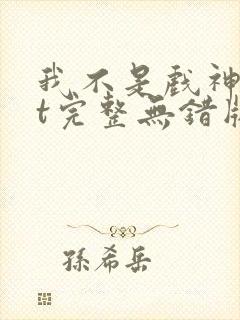 我不是戲神
t完整無錯版
孫希岳